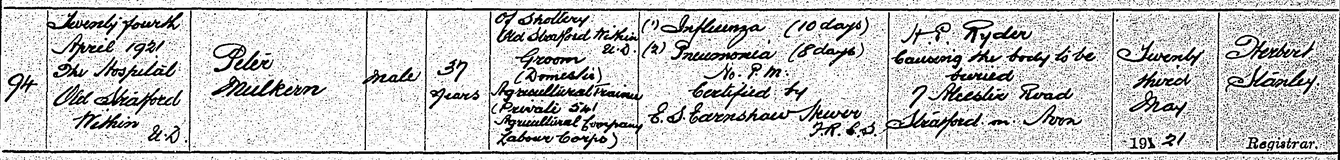 94
Twenty fourth
April 1921
The Hospital
Old Stratford
Within
U.D.
Peter
Mulkern
Male
37
Years
Of Shottery
Old Stratford Within
U.D.
Groom
(Domestic)
Agricultural Trainee
(Private 541
Agricultural Company
Labour Corps)
(1) Influenza (10 days)
(2) Pneumonia (8 days)
No. P.M.
Certified by
E. S. Earnshaw Hewer
F.R.C.S.
H. P. Ryder
Causing the body to be
buried
7 Alcester Road
Stratford on Avon
Twenty
third
May
1921
Herbert
Stanley
Registrar.